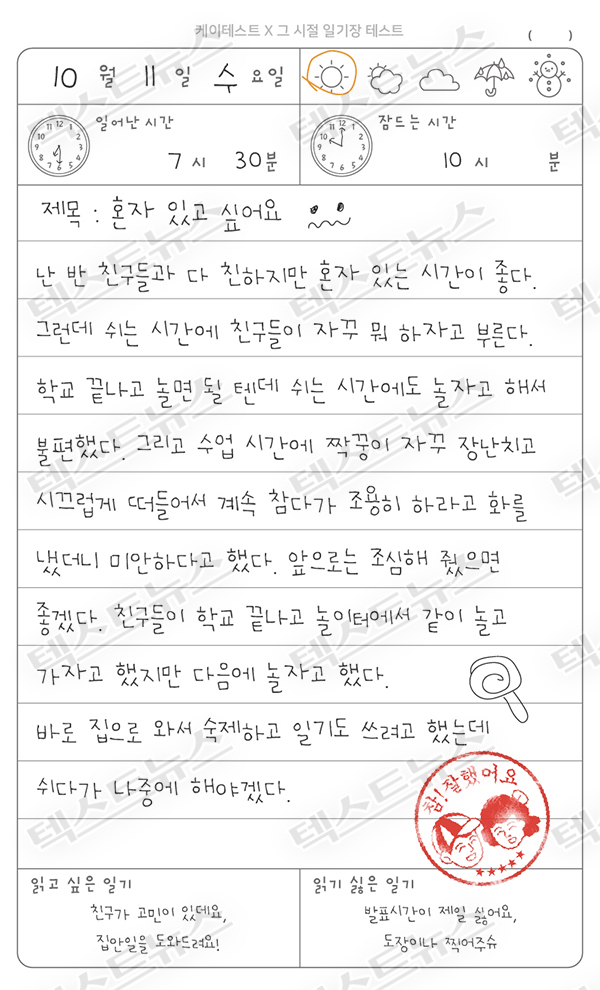 케이테스트 X 그 시절 일기장 테스트
( )
10 월 11 일 수 요일
일어난 시간
7 시 30분
잠드는 시간
10 시 분
제목 : 혼자 있고 싶어요
난 반 친구들과 다 친하지만 혼자 있는 시간이 좋다.
그런데 쉬는 시간에 친구들이 자꾸 뭐 하자고 부른다.
학교 끝나고 놀면 될 텐데 쉬는 시간에도 놀자고 해서
불편했다. 그리고 수업 시간에 짝꿍이 자꾸 장난치고
시끄럽게 떠들어서 계속 참다가 조용히 하라고 화를
냈더니 미안하다고 했다. 앞으로는 조심해 줬으면
좋겠다. 친구들이 학교 끝나고 놀이터에서 같이 놀고
가자고 했지만 다음에 놀자고 했다.
바로 집으로 와서 숙제하고 일기도 쓰려고 했는데
쉬다가 나중에 해야겠다.
참! 잘했어요
읽고 싶은 일기
친구가 고민이 있데요,
집안일을 도와드려요!
읽기 싫은 일기
발표시간이 제일 싫어요,
도장이나 찍어주슈
텍스트뉴스